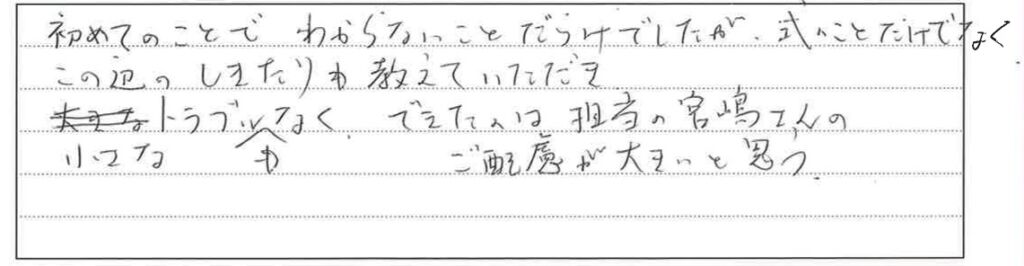 初めてのことで わからないことだらけでしたが、式のことだけでなく
この辺の しきたりも 教えていただき
大きな トラブルなく、できたのは 担当の宮嶋さんの
小さな も ご配慮が大きいと思う。